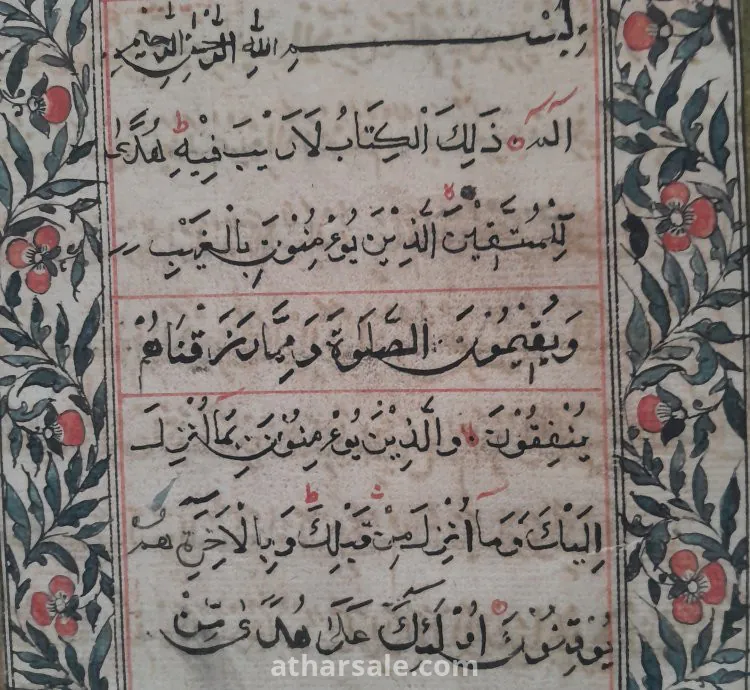 بِسْمِ اللّٰهِ الرَّحْمٰنِ الرَّحِيْمِ
الٓمٓ ذَلِكَ الْكِتَابُ لَا رَيْبَ فِيْهِ هُدًى
لِّلْمُتَّقِيْنَ الَّذِيْنَ يُوْءمِنُوْنَ بِالْغَيْبِ
وَيُقِيْمُوْنَ الصَّلَوٰةَ وَمِمَّا رَزَقْنَاهُمْ
يُنْفِقُوْنَ وَالَّذِيْنَ يُوْءمِنُوْنَ بِمَا اُنْزِلَ
اِلَيْكَ وَمَآ اُنْزِلَ مِنْ قَبْلِكَ وَبِالْاَخِرَةِ هُمْ
يُوْقِنُوْنَ اُوْلَئِكَ عَلَى هُدًى مِّنْ
atharsale.com